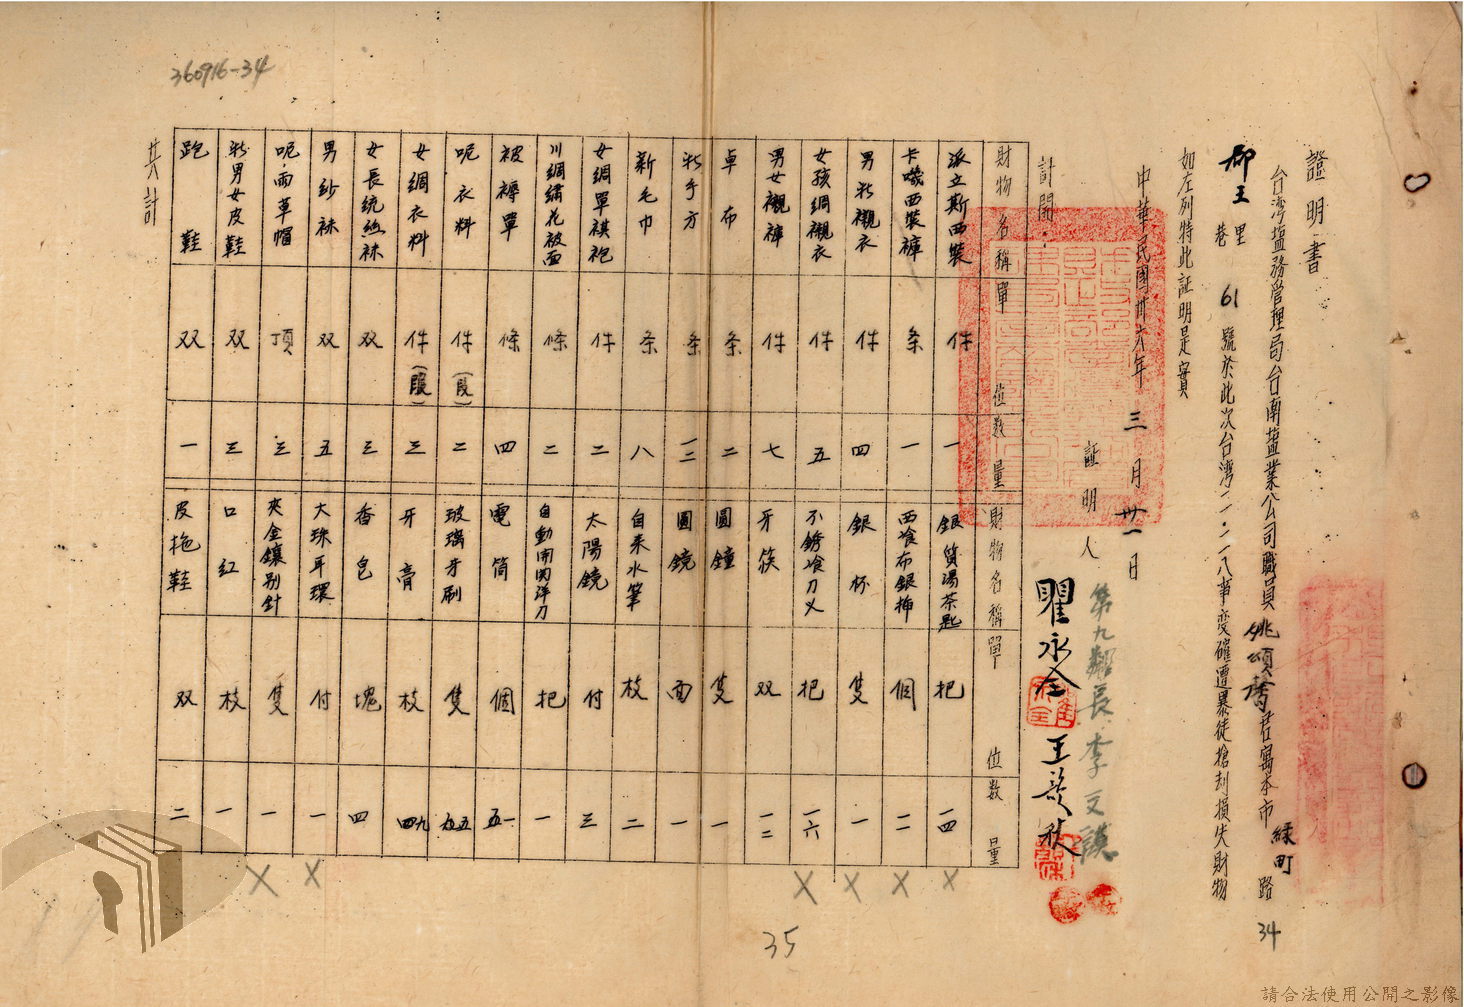 證明書
台湾塩務管理局台南塩業公司職員姚頌馨君寓本市綠町路34
郡王里巷61號於此次台湾二·二八事变確遭暴徒搶刦損失財物
如左列特此証明是實
中華民國卅六年三月卅一日
証明人
第九鄰長 李文謨
瞿永全
計開：
財物名稱 單位 數量 財物名稱 單位 數量
派立斯西裝 件 一 銀質湯茶匙 把 一四
卡嘰西裝褲 条 一 西飱布銀插 個 一二
男新襯衣 件 四 銀杯 隻 一
女孩綢襯衣 件 五 不銹飱刀义 把 一六
男女襯褲 件 七 牙筷 双 一二
卓布 条 二 圓鐘 隻 一
新手方 条 一二 圓鏡 面 一
新毛巾 条 八 自来水筆 枝 二
女綢單祺袍 件 二 太陽鏡 付 三
川綢繡花被面 條 二 自動開関洋刀 把 一
被褥單 條 四 電筒 個 一五
呢衣料 件（段） 二 玻璃牙刷 隻 五九
女綢衣料 件（段） 三 牙膏 枝 九四
女長統絲袜 双 三 香皂 塊 四
男紗袜 双 五 大珠耳環 付 一
呢·雨草帽 頂 三 夾金鑲别針 隻 一
新男女皮鞋 双 三 口紅 枝 一
跑鞋 双 一 皮拖鞋 双 二
共計
360916-34
35
請合法使用公開之影像